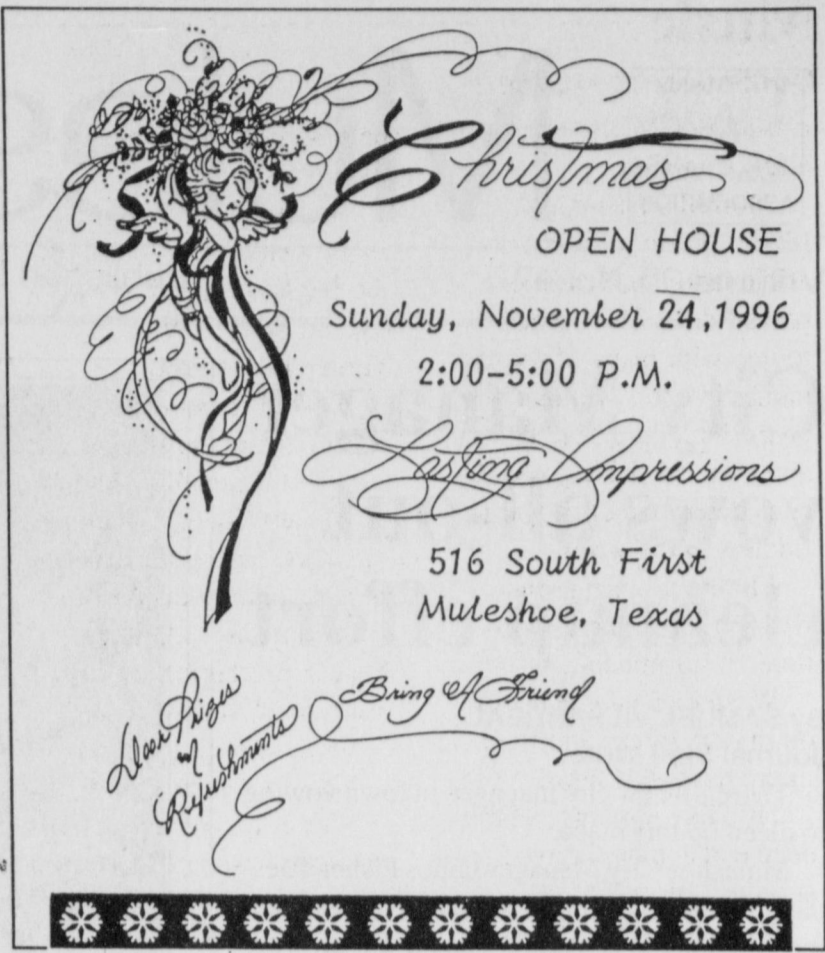 Christmas
OPEN HOUSE
Sunday, November 24, 1996
2:00-5:00 P.M.
Lasting Impressions
516 South First
Muleshoe, Texas
Bring A Friend
Door Prizes
Refreshments